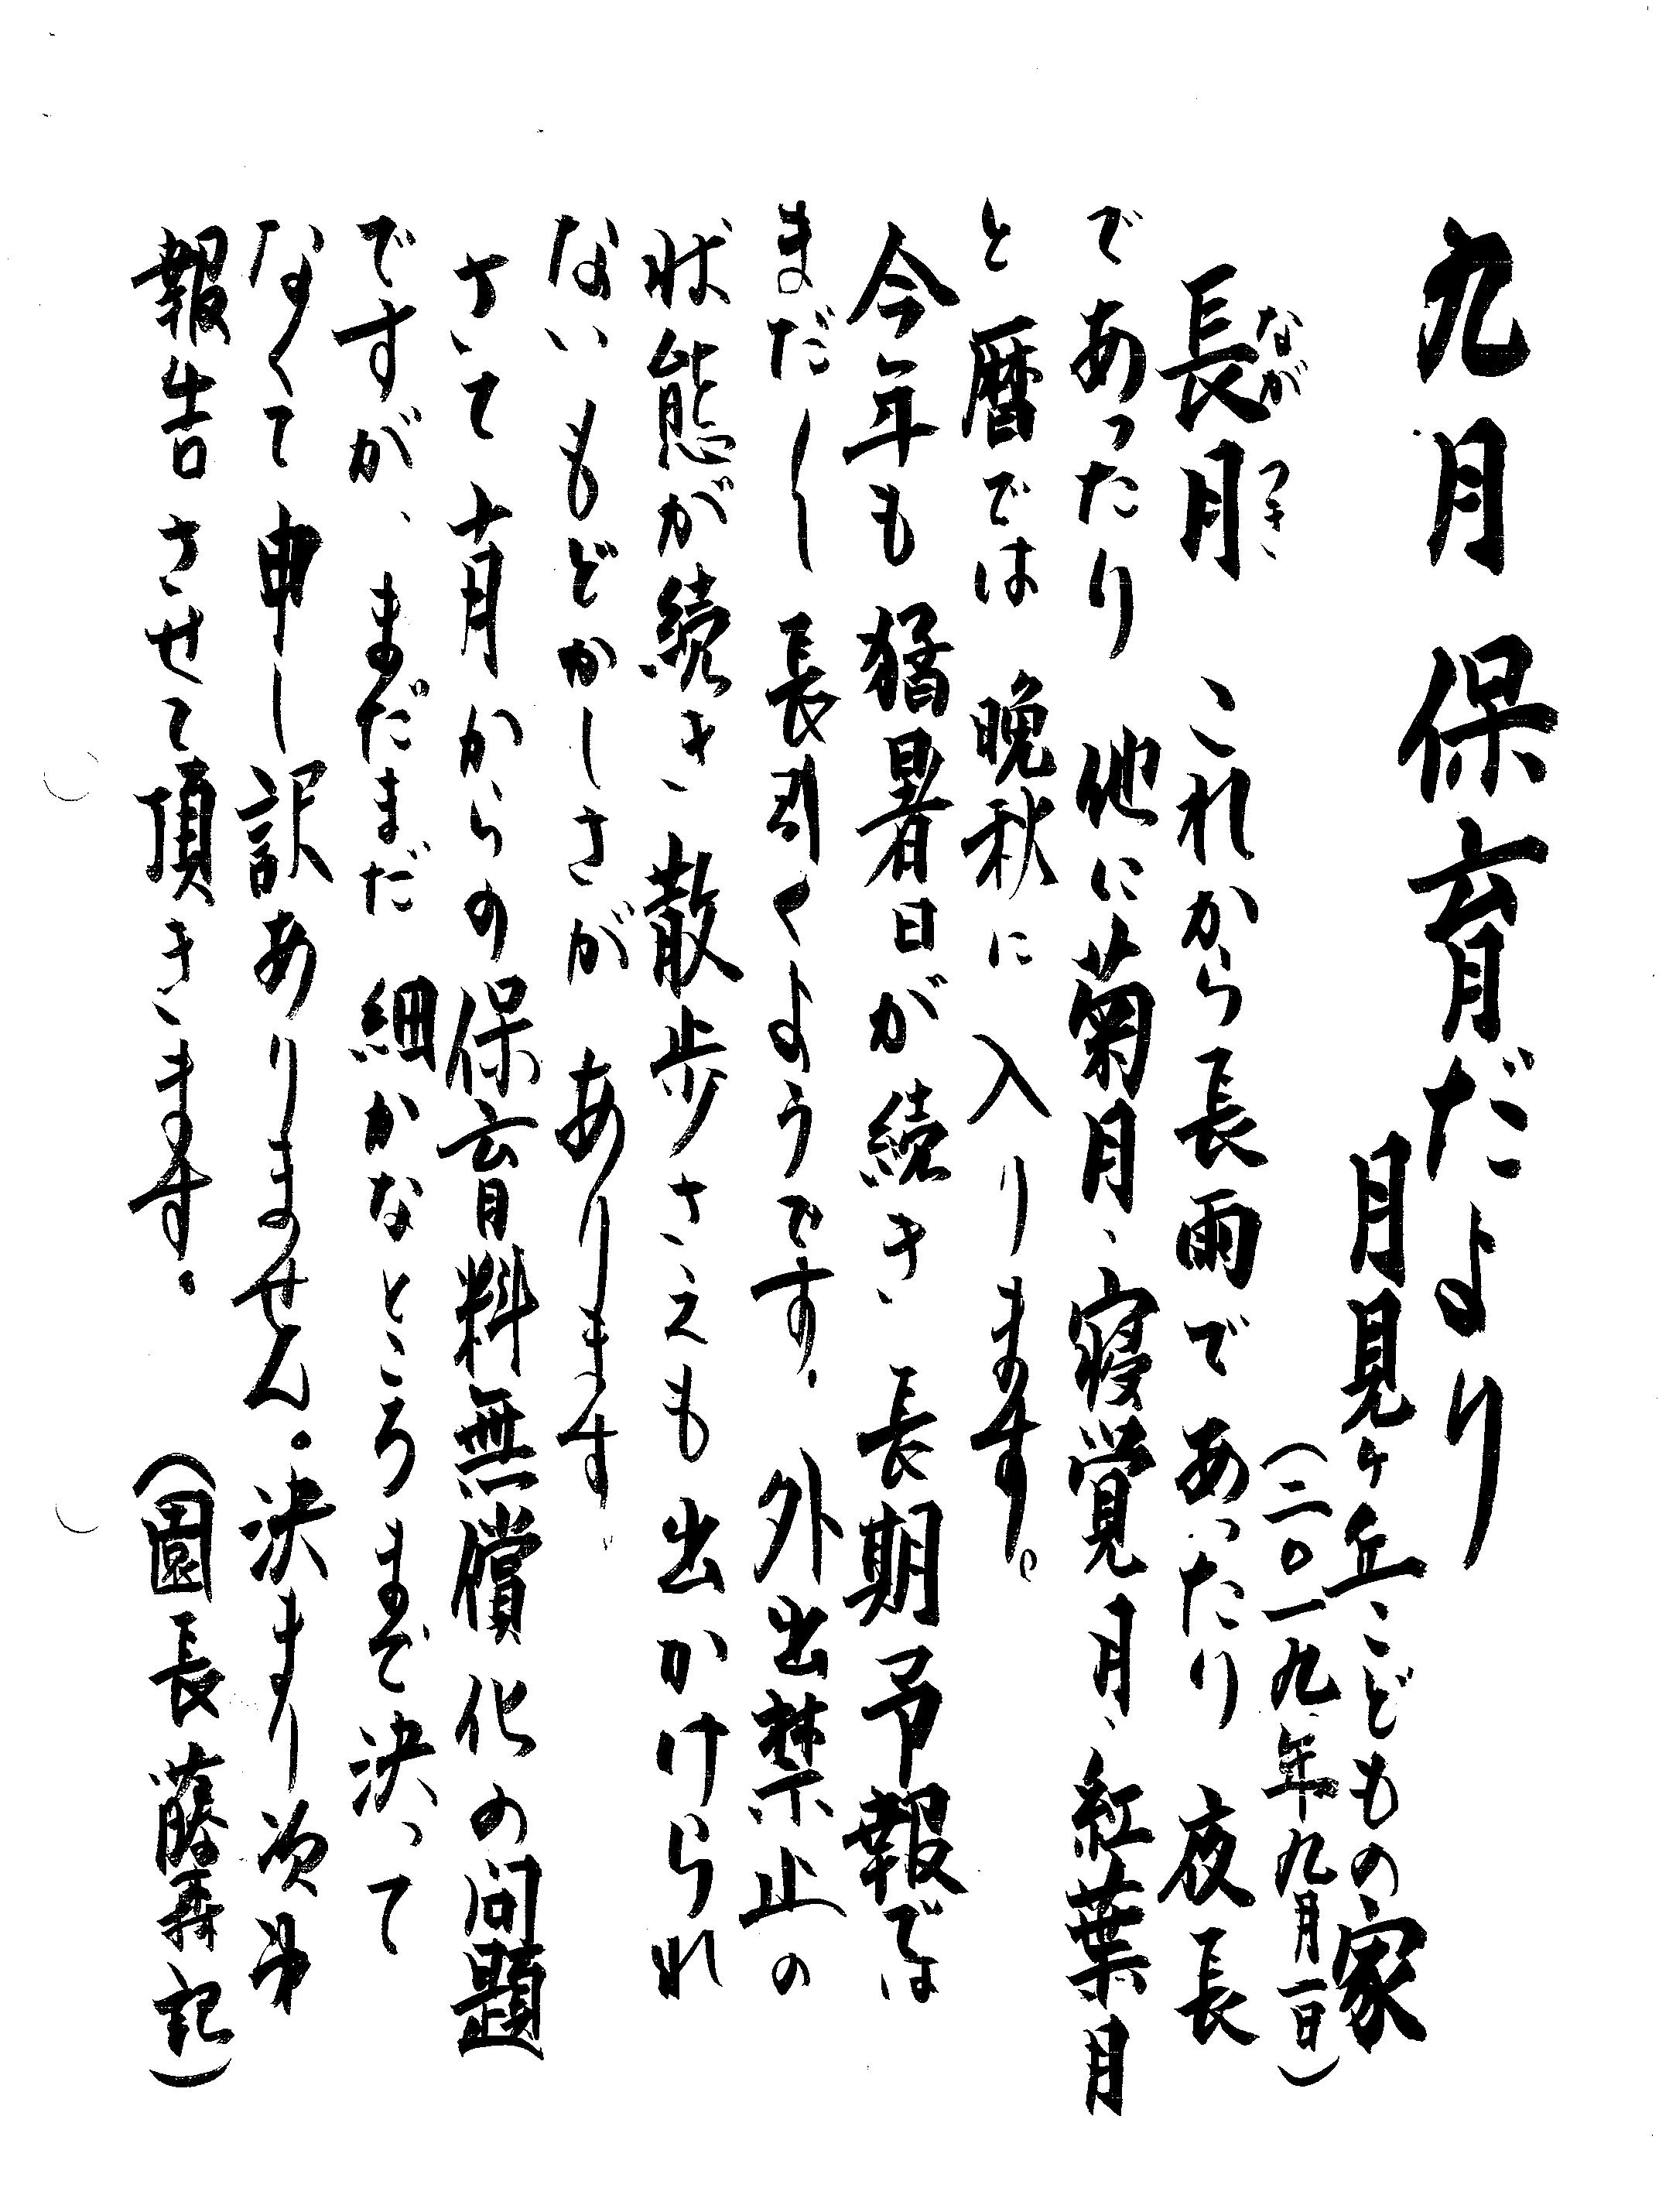 九月 保育だより
月見ヶ丘こどもの家
(二〇一九年九月一日)
ながつき
長月 これから長雨であったり 夜長
であったり 他に菊月、寝覚月、紅葉月
と暦では 晩秋に入ります。
今年も猛暑日が続き 長期予報では
まだ〱長引くようです。外出禁止の
状態が続き散歩さえも出かけられ
ないもどかしさが あります。
さて十月からの保育料無償化の問題
ですが、まだまだ細かなところまで決って
なくて申し訳ありません。決まり次第
報告させて頂きます。 (園長 藤森記)